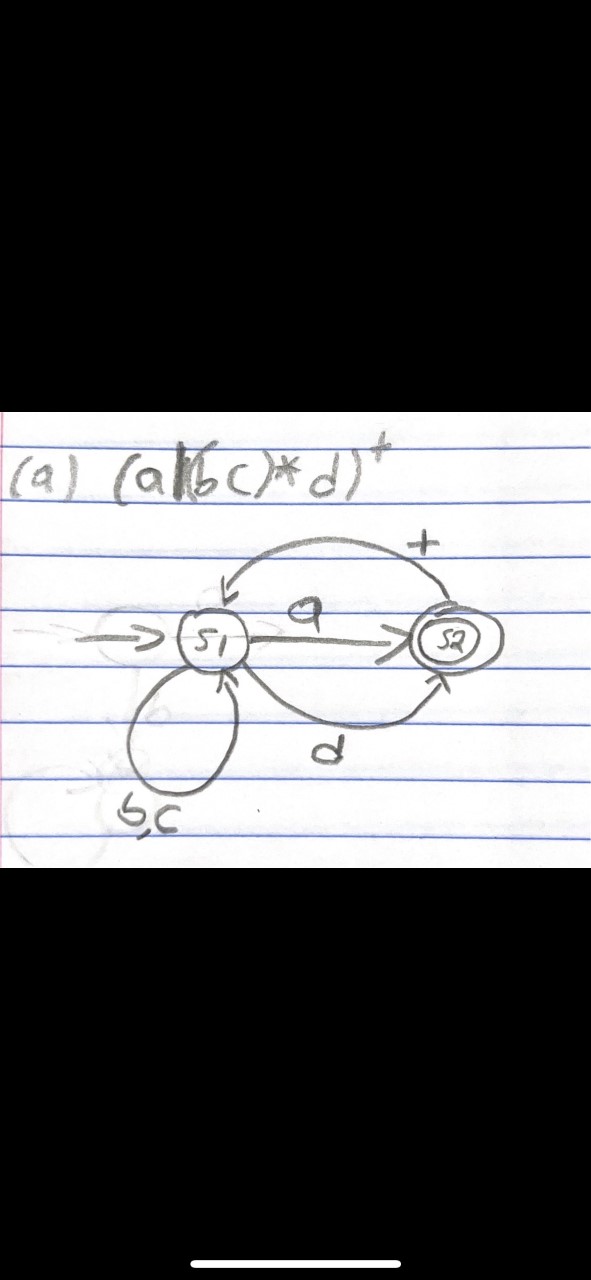 (a) (a|(bc)*d)⁺
+
a
S1
S2
d
b,c